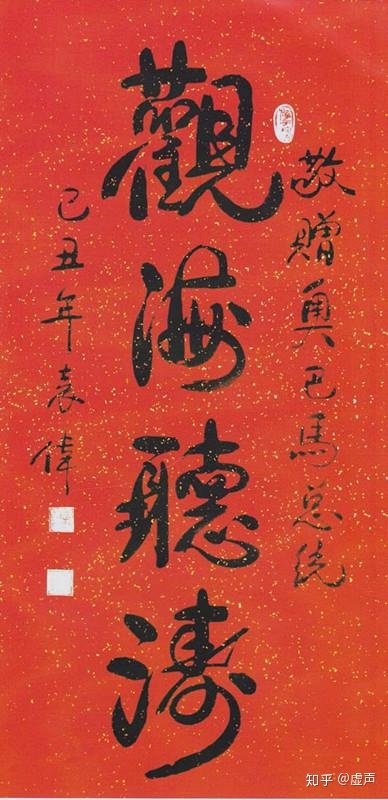 敬贈奥巴馬总统
觀海聽濤
己丑年袁偉
知乎 @虚声